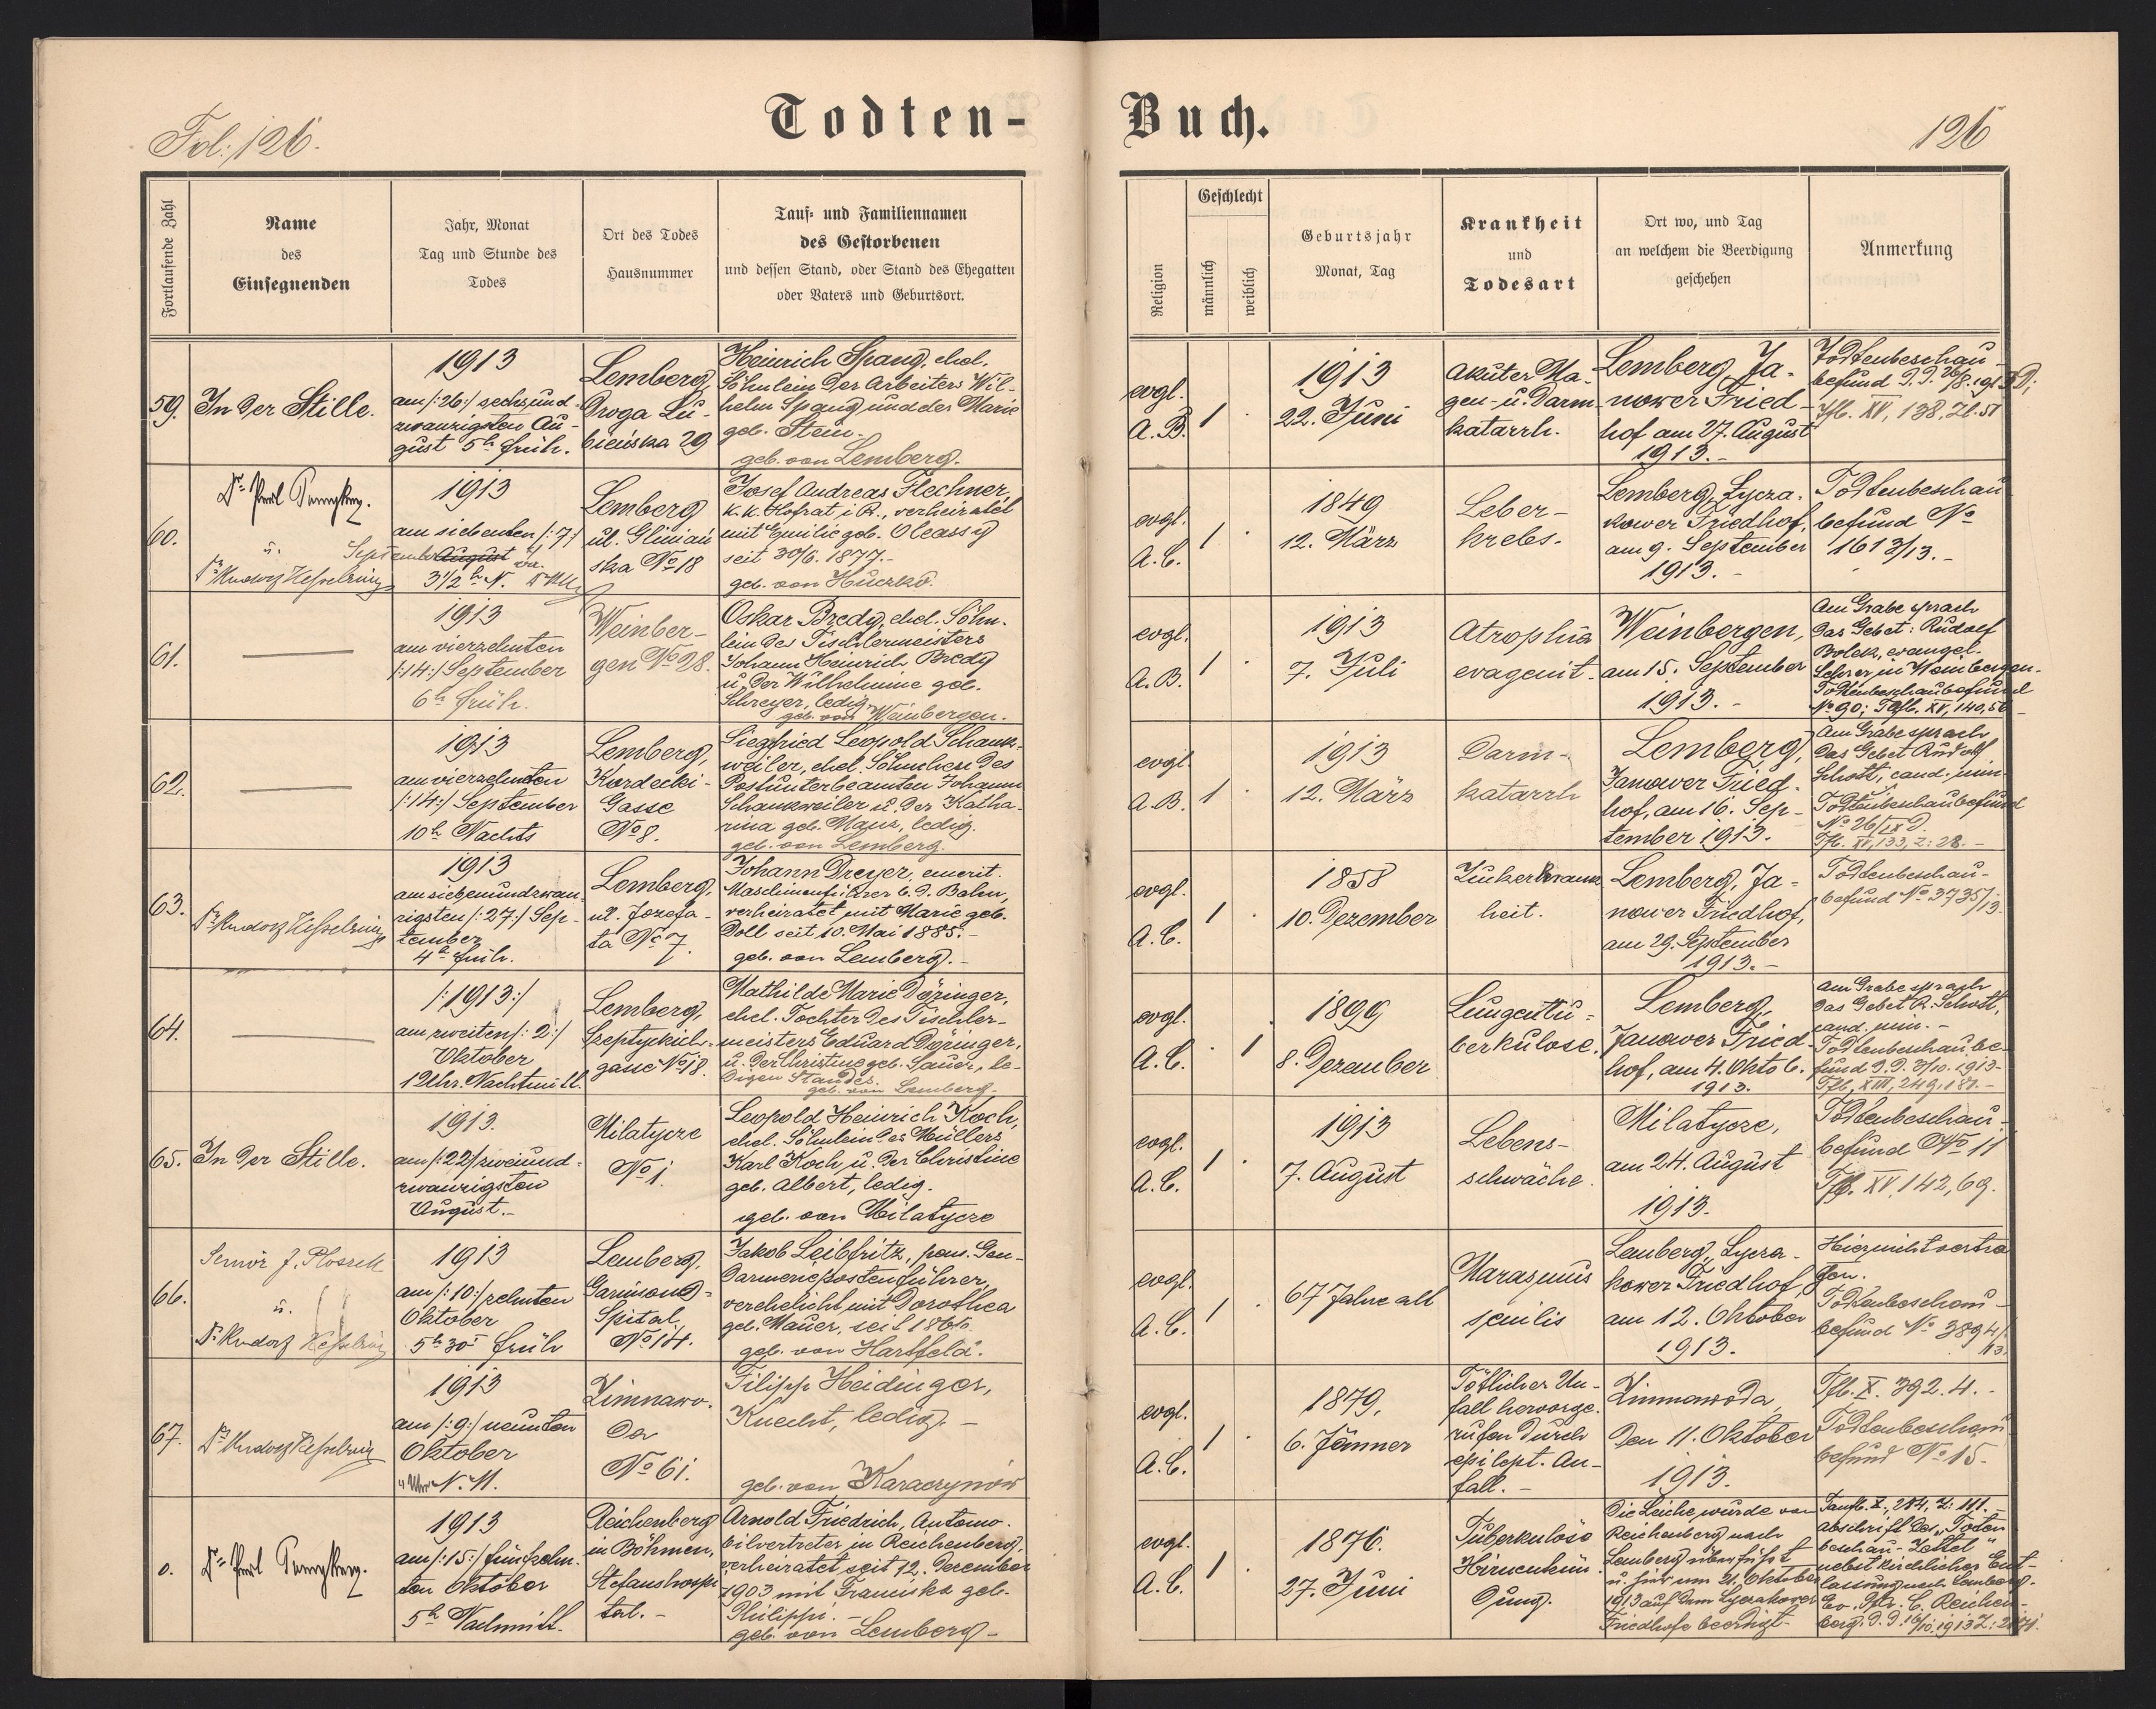 Todten-Buch.
Fol: 126.
126
Fortlaufende Zahl
Name
des
Einsegnenden
Jahr, Monat
Tag und Stunde des
Todes
Ort des Todes
Hausnummer
Tauf- und Familiennamen
des Gestorbenen
und dessen Stand, oder Stand des Ehegatten
oder Vaters und Geburtsort.
Religion
Geschlecht
männlich
weiblich
Geburtsjahr
Monat, Tag
Krankheit
und
Todesart
Ort wo, und Tag
an welchem die Beerdigung
geschehen
Anmerkung
59.
In der Stille.
1913
am /:26:/ sechsund-
zwanzigsten Au-
gust 5h früh.
Lemberg,
Droga Lu-
bieńska 29
Heinrich Spang, ehel.
Söhnlein des Arbeiters Wil-
helm Spang und der Marie
geb. Stein.
geb. von Lemberg.
evgl.
A.B.
1
1913
22. Juni
Akuter Ma-
gen- u. Darm-
katarrh.
Lemberg, Ja-
nower Fried-
hof am 27. August
1913.-
Todtenbeschau-
befund d.d. 26/8. 1913
Tfb. XV, 138, Zl. 51
60.
u.
1913
am siebenten /:7:/
September August
3 1/2 h N.
Lemberg
ul. Gliniań-
ska No 18
Josef Andreas Flechner,
k.k. Hofrat i.R., verheiratet
mit Emilie geb. Oleassy
seit 30/6. 1877.-
geb. von Huczko.
evgl.
A.C.
1
1849
12. März
Leber-
krebs.
Lemberg, Lycza-
kower Friedhof,
am 9. September
1913.-
Todtenbeschau
befund No
1613/13.-
61.
1913
am vierzehnten
/:14:/ September
6h früh.
Weinber-
gen No 28.
Oskar Bredy, ehel. Söhn-
lein des Tischlermeisters
Johann Heinrich Bredy
u. der Wilhelmine geb.
Schreyer, ledig.
geb. von Weinbergen.
evgl.
A.B.
1
1913
7. Juli
Atrophia
evagenit.
Weinbergen,
am 15. September
1913.-
Am Grabe sprach
das Gebet: Rudolf
Bolek, evangel.
Lehrer in Weinbergen.
Todtenbeschaubefund
No 90; Tfb. XV, 140, 56
62.
1913
am vierzehnten
/:14:/ September
10h Nachts
Lemberg,
Kordecki-
Gasse
No 8.
Siegfried Leopold Schank-
weiler, ehel. Söhnchen des
Postunterbeamten Johann
Schankweiler u. der Katha-
rina geb. Manz, ledig.
geb. von Lemberg.
evgl
A.B.
1
1913
12. März
Darm-
katarrh
Lemberg,
Janower Fried-
hof, am 16. Sep-
tember 1913.
Am Grabe sprach
das Gebet Rudolf
Schott, cand. min
Todtenbeschaubefund
No 26/IX
Tfb. XV, 133, Z: 28.-
63.
1913
am siebenundzwan-
zigsten /:27:/ Sep-
tember
4h früh.
Lemberg,
ul. Jozefa-
ta No 7.
Johann Dreyer, emerit.
Maschinenführer b. d. Bahn,
verheiratet mit Marie geb.
Doll seit 10. Mai 1885.-
geb. von Lemberg.-
evgl.
A.C.
1
1858
10. Dezember
Zuckerkrank-
heit.
Lemberg, Ja-
nower Friedhof,
am 29. September
1913.-
Todtenbeschau-
befund No 3735/13
64.
/:1913:/
am zweiten /:2:/
Oktober
12 Uhr Nachtmitt.
Lemberg,
Szeptyckich-
gasse No 18.
Mathilde Marie Döringer,
ehel. Tochter des Tischler-
meisters Eduard Döringer,
u. der Christine geb. Sauer, le-
digen Standes.
geb. von Lemberg.
evgl.
A.C.
1
1899
8. Dezember
Lungentu-
berkulose.
Lemberg,
Janower Fried-
hof, am 4. Oktob.
1913.
Am Grabe sprach
das Gebet R. Schott,
cand. min.-
Todtenbeschaube-
fund d.d. 3/10. 1913
Tfb. XIII, 249, 181.-
65.
In der Stille.
1913.
am /:22/ zweiund-
zwanzigsten
August.-
Milatycze
No 1.
Leopold Heinrich Koch,
ehel. Söhnlein des Müllers
Karl Koch u. der Christine
geb. Albert, ledig.
geb. von Milatycze
evgl.
A.C.
1
1913
7. August
Lebens-
schwäche.
Milatycze,
am 24. August
1913.
Todtenbeschau-
befund No 11
Tfb. XV, 142, 69.
66.
Senior J.
u.
1913
am /:10:/ zehnten
Oktober
5h 30 früh
Lemberg,
Garnisons-
Spital
No 14.
Jakob Leibfritz, pens. Gen-
darmeriepostenführer,
verehelicht mit Dorothea
geb. Mauer, seit 1866
geb. von Hartfeld.
evgl.
A.C.
1
67 Jahre alt
Marasmus
senilis
Lemberg, Lycza-
kower Friedhof,
am 12. Oktober
1913.
Todtenbeschau-
befund No 3894/
13.
67.
1913
am /:9:/ neunten
Oktober
4 Uhr N.M.
Zimnawo-
da
No 61.
Filipp Heidinger,
Knecht, ledig.-
geb. von Karaczynów
evgl.
A.C.
1
1879,
6. Jänner
Tötlicher Un-
fall hervorge-
rufen durch
epilept. An-
fall.-
Zimnawoda,
den 11. Oktober
1913.
Tfb. X. 392. 4.-
Todtenbeschau
befund No 15.
0.
1913
am /:15:/ fünfzehn-
ten Oktober
5h Nachmitt.
Reichenberg
in Böhmen,
Stefanshospi-
tal.-
Arnold Friedrich, Automo-
bilvertreter in Reichenberg,
verheiratet seit 12. Dezember
1903 mit Franciska geb.
Philippi.-
geb. von Lemberg-
evgl.
A.C.
1
1876.
27. Juni
Tuberkulöse
Hirnentzün-
dung.
Die Leiche wurde von
Reichenberg nach
Lemberg überführt
u. hier am 21. Oktober
1913 auf dem Lyczakower
Friedhofe beerdigt-
Taufb. X: 284, Z: 111.-
Abschrift des "Toten-
beschau-Zettel"
nebst kirchlicher Ent-
lassung nach Lemberg.
Reichen-
berg. d.d. 16/10. 1913